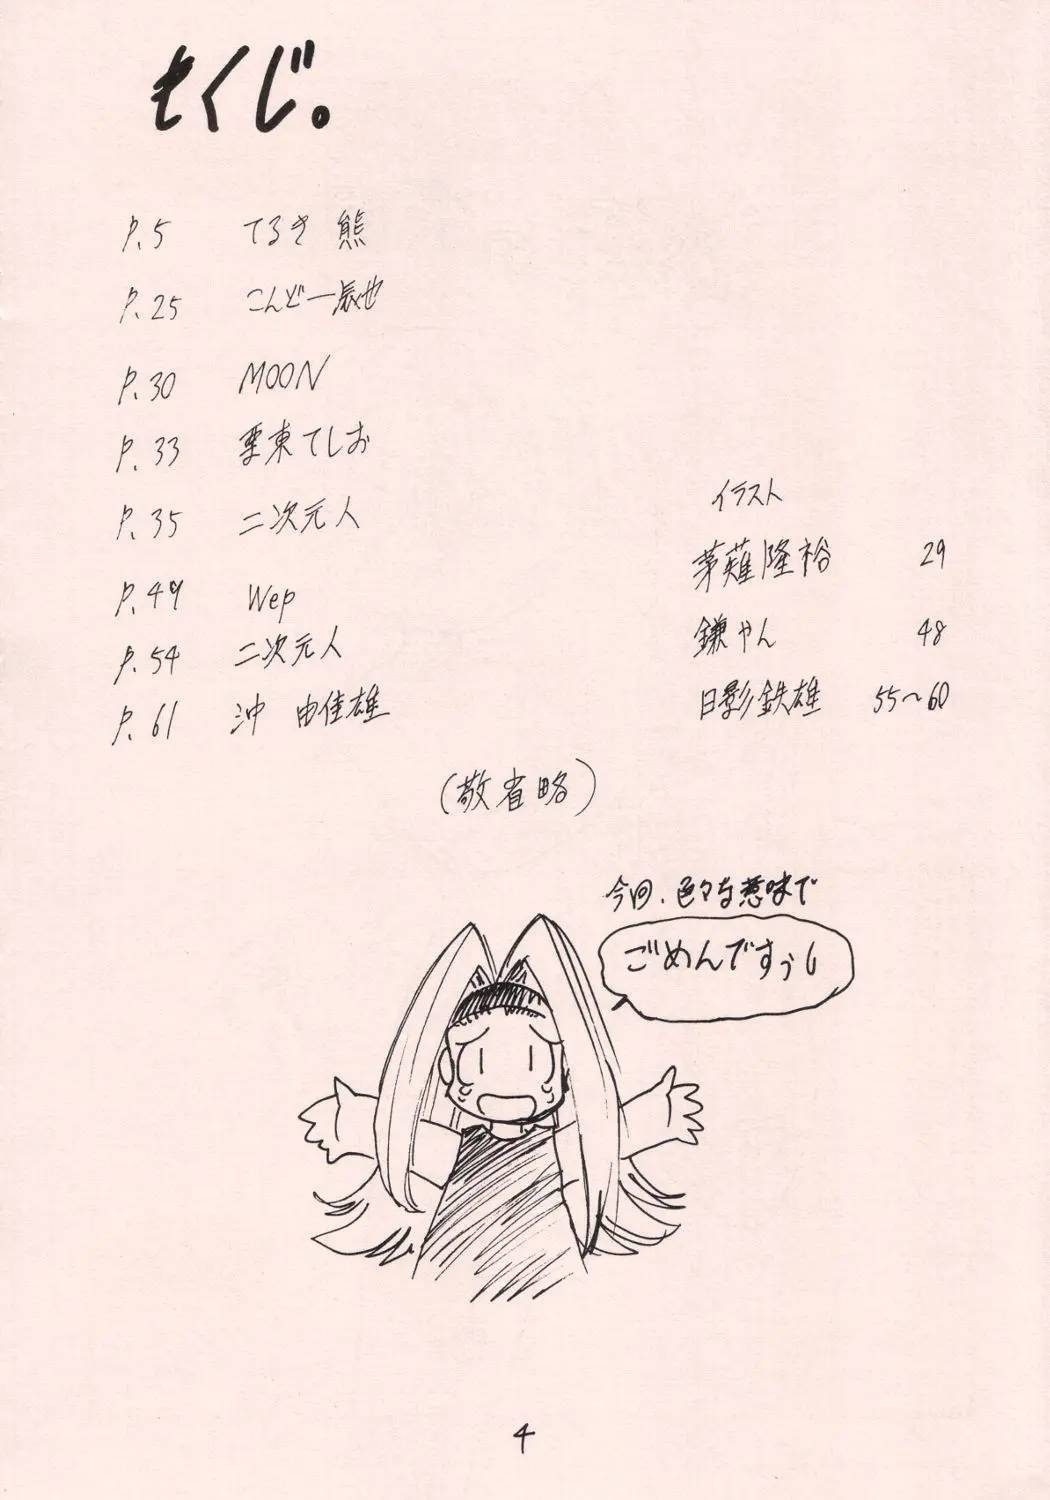 もくじ。
P.5 てるき 熊
P.25 こんどー辰也
P.30 MOON
P.33 栗東てしお
P.35 二次元人
P.49 Wep
P.54 二次元人
P.61 沖 由佳雄
イラスト
茅薙隆裕 29
鎌やん 48
日影鉄雄 55〜60
(敬省略)
今回、色々な意味で
ごめんですぅし
4